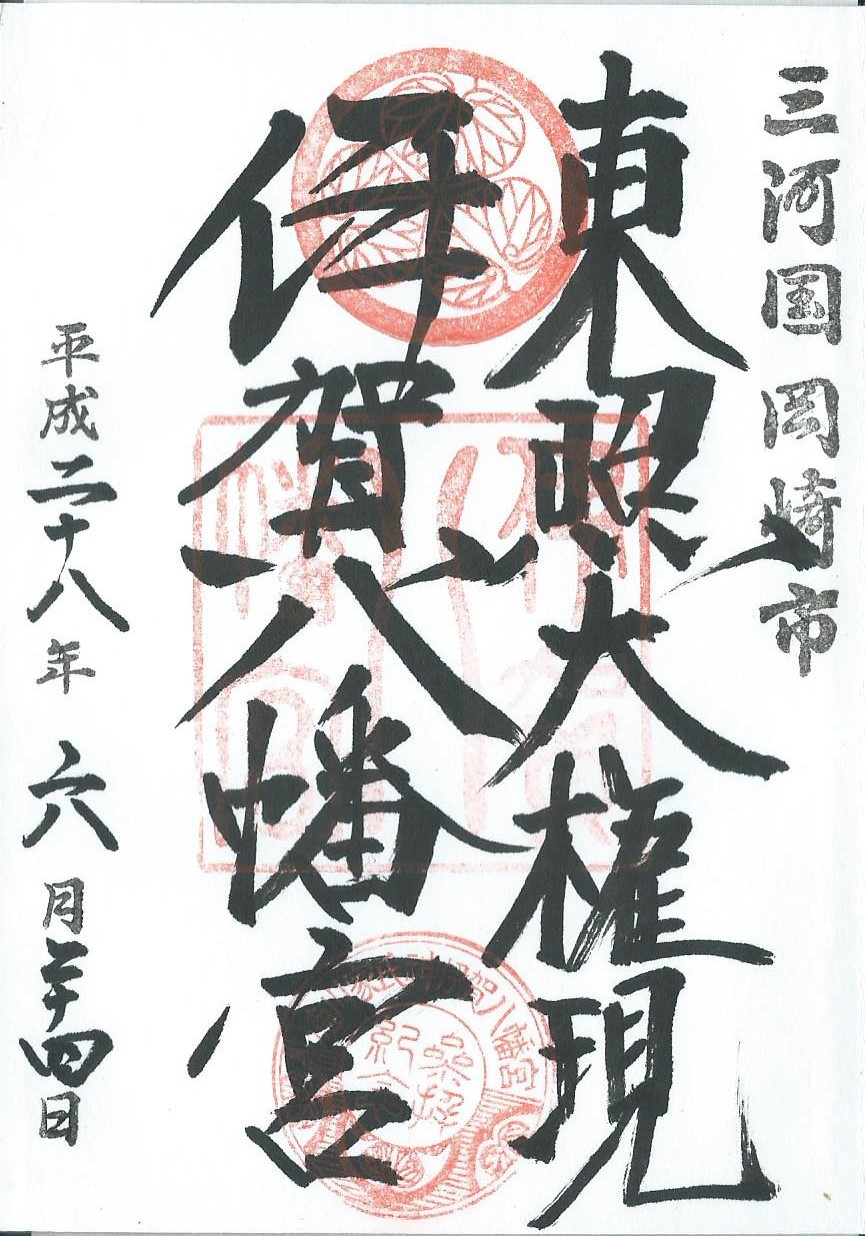 三河国岡崎市
東照大権現
伊賀八幡宮
平成二十八年 六月二十四日
伊賀八幡宮
参拝
記念